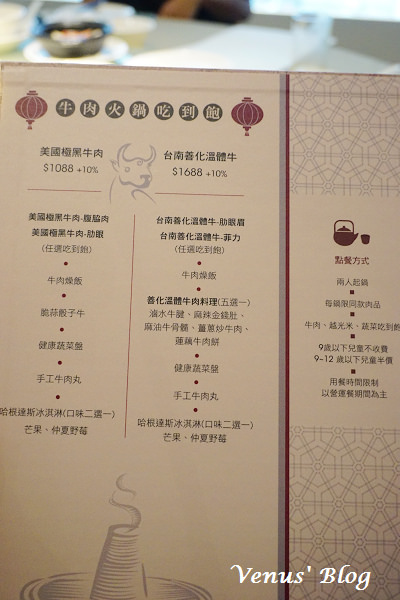 牛肉火鍋吃到飽
美國極黑牛肉
$1088 +10%
美國極黑牛肉-腹脇肉
美國極黑牛肉-肋眼
(任選吃到飽)
牛肉燥飯
脆蒜骰子牛
健康蔬菜盤
手工牛肉丸
哈根達斯冰淇淋(口味二選一)
芒果、仲夏野莓
台南善化溫體牛
$1688 +10%
台南善化溫體牛-肋眼眉
台南善化溫體牛-菲力
(任選吃到飽)
牛肉燥飯
善化溫體牛肉料理(五選一)
滷水牛腱、麻辣金錢肚、
麻油牛骨髓、薑蔥炒牛肉、
蓮藕牛肉餅
健康蔬菜盤
手工牛肉丸
哈根達斯冰淇淋(口味二選一)
芒果、仲夏野莓
點餐方式
兩人起鍋
每鍋限同款肉品
牛肉、越光米、蔬菜吃到飽
9歲以下兒童不收費
9~12 歲以下兒童半價
用餐時間限制
以營運餐期間為主
Venus' Blog